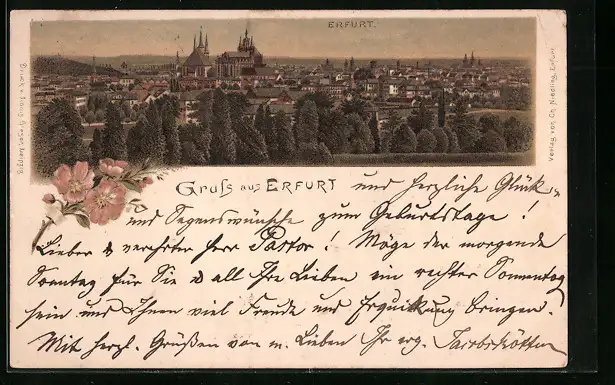 ERFURT.
Verlag von Ch. Niedling, Erfurt
Gruss aus ERFURT und herzliche Glück-
und Segenswünsche zum Geburtstage!
Lieber & verehrter Herr Pastor! Möge der morgende
Sonntag für Sie & all Ihre Lieben ein rechter Sonnentag
sein und Ihnen viel Freude und Erquickung bringen.
Mit herzl. Grüßen von m. Lieben Ihr erg.